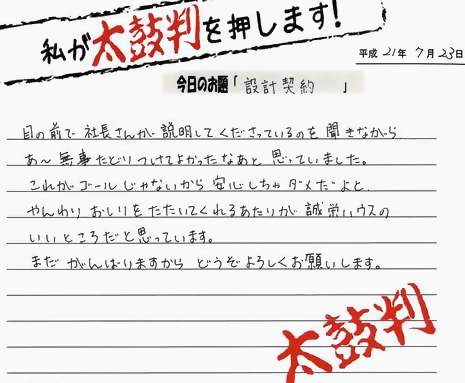 私が太鼓判を押します!
平成 21年 7月 23日
今日のお題「設計契約」
目の前で 社長さんが 説明してくださっているのを 聞きながら
あ～ 無事たどりつけてよかったなあと 思っていました。
これがゴールじゃないから 安心しちゃダメだよと、
やんわり おしりをたたいてくれるあたりが 誠労ハウスの
いいところだと思っています。
まだ がんばりますから どうぞよろしくお願いします。
太鼓判